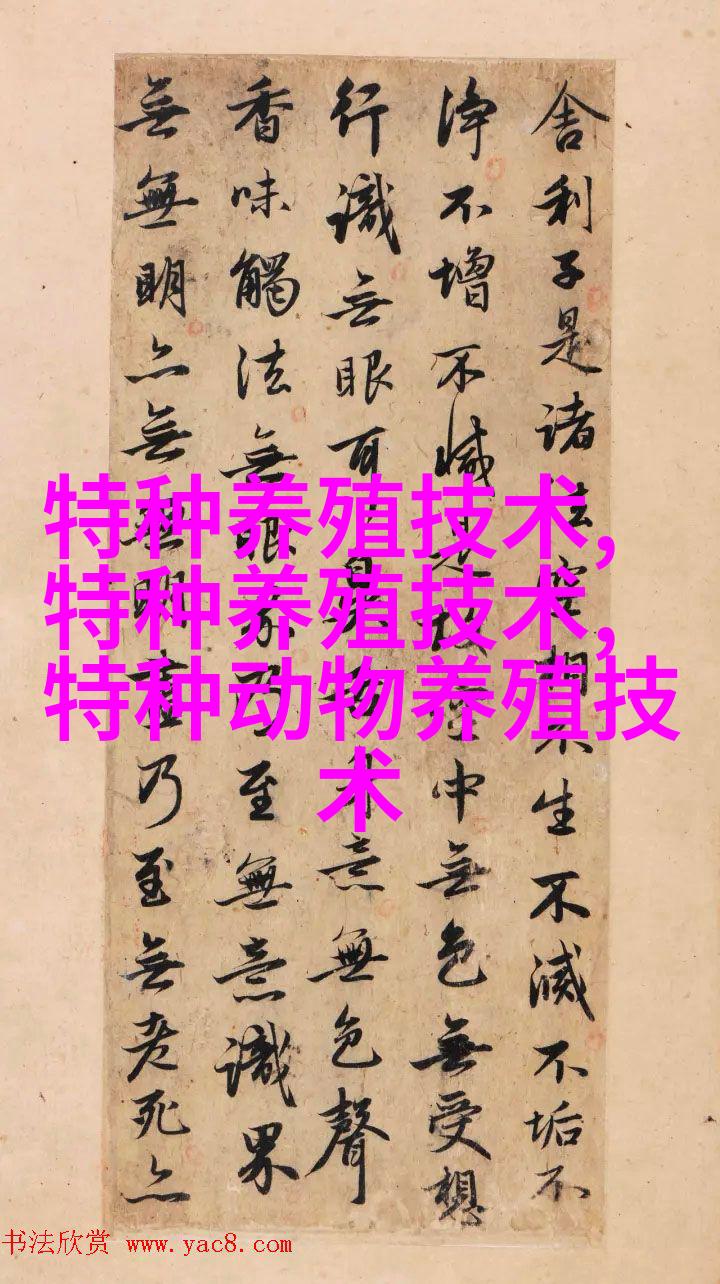 舍利子是诸法空相不生不滅不垢不
淨不增不減是故空中無色無受想
行識無眼耳鼻舌身意無色聲
香味觸法無眼界乃至無意識界
無無明亦無無明盡乃至無老死亦
特种养殖技术,
特种养殖技术,
特种动物养殖技
术
书法欣赏 www.yac8.com